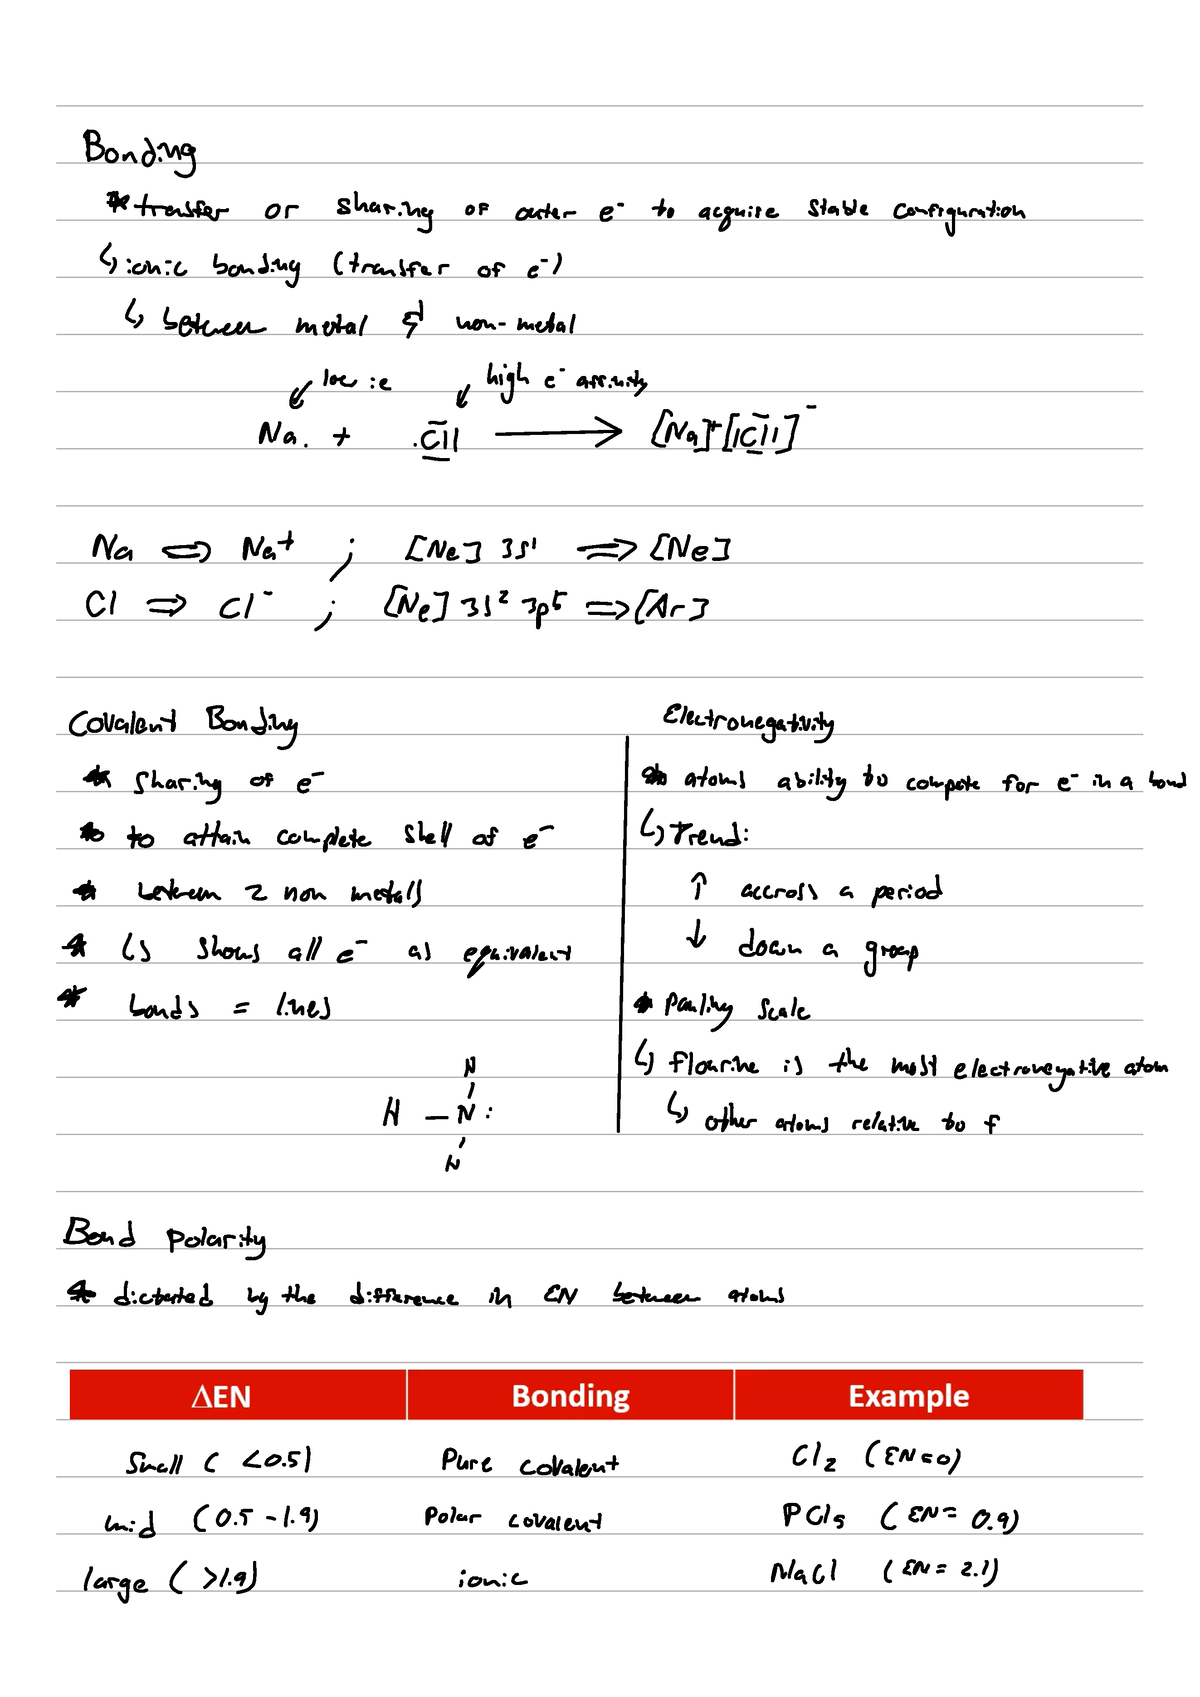 Bonding
* transfer or sharing of outer e⁻ to acquire stable configuration
↳ ionic bonding (transfer of e⁻)
↳ between metal & non-metal
↙ low ie ↙ high e⁻ affinity
Na. + .Cl| → [Na]⁺[|Cl|]⁻
Na ⇔ Na⁺ ; [Ne] 3s¹ ⇒ [Ne]
Cl ⇒ Cl⁻ ; [Ne] 3s² 3p⁵ ⇒ [Ar]
Covalent Bonding
* sharing of e⁻
* to attain complete shell of e⁻
* between 2 non metals
* LS shows all e⁻ as equivalent
* bonds = lines
H
H – N :
H
Electronegativity
* atoms ability to compete for e⁻ in a bond
↳ Trend:
↑ accross a period
↓ down a group
* Pauling scale
↳ flourine is the most electronegative atom
↳ other atoms relative to f
Bond Polarity
* dictated by the difference in EN between atoms
ΔEN Bonding Example
Small ( <0.5) Pure covalent Cl₂ (EN=0)
mid (0.5 - 1.9) Polar covalent PCl₅ (EN= 0.9)
large ( >1.9) ionic NaCl (EN= 2.1)